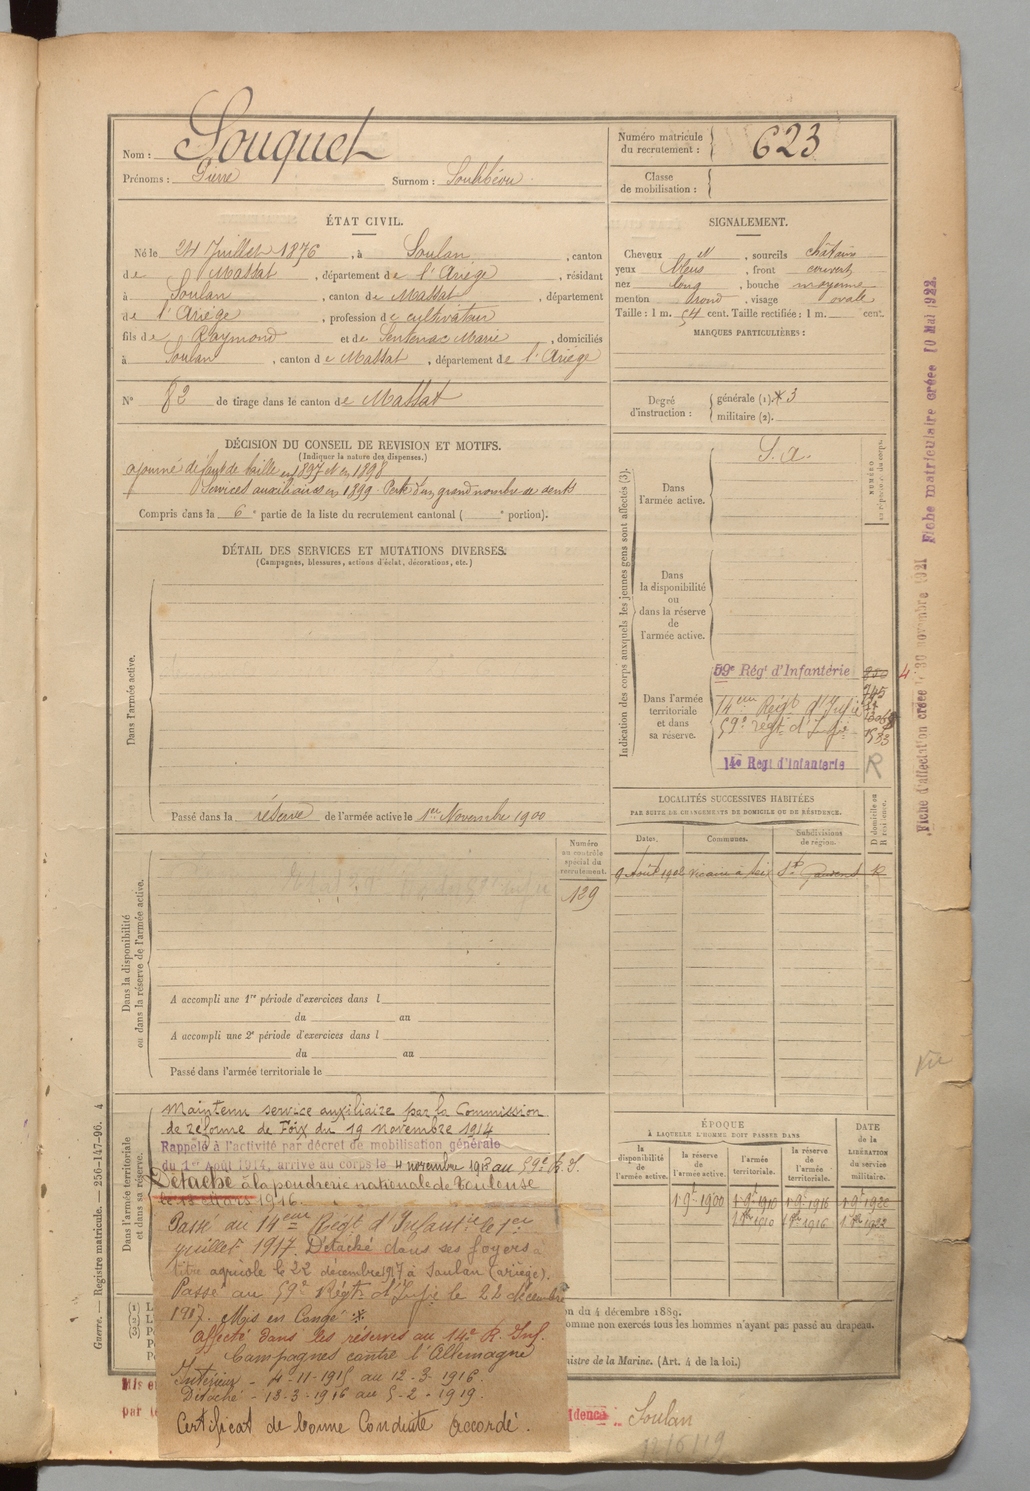 Nom : Souquet
Prénoms : Pierre Surnom : Soulibéou
Numéro matricule du recrutement : 623
Classe de mobilisation :
ÉTAT CIVIL.
Né le 24 Juillet 1876, à Soulan, canton
de Massat, département de l'Ariège, résidant
à Soulan, canton de Massat, département
de l'Ariège, profession de cultivateur
fils de Raymond et de Sentenac Marie, domiciliés
à Soulan, canton de Massat, département de l'Ariège
N° 82 de tirage dans le canton de Massat
SIGNALEMENT.
Cheveux et, sourcils châtain
yeux bleus, front couvert
nez long, bouche moyenne
menton rond, visage ovale
Taille : 1 m. 54 cent. Taille rectifiée : 1 m. cent.
MARQUES PARTICULIÈRES :
Degré d'instruction : générale (1). 3
militaire (2).
DÉCISION DU CONSEIL DE REVISION ET MOTIFS.
(Indiquer la nature des dispenses.)
ajourné défaut de taille en 1897 et en 1898
Services auxiliaires en 1899 Perte d'un grand nombre de dents
Compris dans la 6e partie de la liste du recrutement cantonal ( e portion).
DÉTAIL DES SERVICES ET MUTATIONS DIVERSES.
(Campagnes, blessures, actions d'éclat, décorations, etc.)
Dans l'armée active.
Passé dans la réserve de l'armée active le 1er Novembre 1900
Indication des corps auxquels les jeunes gens sont affectés (3).
NUMÉRO
Dans l'armée active. S. a.
Dans la disponibilité ou dans la réserve de l'armée active.
Dans l'armée territoriale et dans sa réserve.
59e Régt d'Infanterie
14eme Régt d'Infie
59e régt d'Infie
14e Regt d'Infanterie
R
Fiche matriculaire créée 10 Mai 1922
Fiche d'affectation créée 30 novembre 1921
LOCALITÉS SUCCESSIVES HABITÉES
PAR SUITE DE CHANGEMENTS DE DOMICILE OU DE RÉSIDENCE.
Dates. Communes. Subdivisions de région. D domicile ou R résidence.
9 Août 1902 St Girons R
Dans la disponibilité ou dans la réserve de l'armée active.
Numéro au contrôle spécial du recrutement.
129
A accompli une 1re période d'exercices dans l
du au
A accompli une 2e période d'exercices dans l
du au
Passé dans l'armée territoriale le
Dans l'armée territoriale et dans sa réserve.
Maintenu service auxiliaire par la Commission
de réforme de Foix du 19 novembre 1914
Rappelé à l'activité par décret de mobilisation générale
du 1er Août 1914, arrivé au corps le 4 novembre 1915 au 59e R.I.
Détaché à la poudrerie nationale de Toulouse
le 13 Mars 1916.
Passé au 14eme Régt d'Infantie le 1er
juillet 1917. Détaché dans ses foyers à
titre agricole le 22 décembre 1917 à Soulan (Ariège).
Passé au 59e Régt d'Infie le 22 décembre
1917. Mis en Congé
affecté dans les réserves au 14e R. Inf.
Campagnes contre l'Allemagne
Intérieur - 4-11-1915 au 12-3-1916.
Détaché - 13-3-1916 au 5-2-1919.
Certificat de bonne Conduite Accordé.
ÉPOQUE
À LAQUELLE L'HOMME DOIT PASSER DANS
la disponibilité de l'armée active. la réserve de l'armée active. l'armée territoriale. la réserve de l'armée territoriale.
DATE de la LIBÉRATION du service militaire.
1 9e 1900 1 9e 1910 1 9e 1916 1 9e 1922
1 9bre 1910 1 9bre 1916 1 9bre 1922
on du 4 décembre 1889.
omme non exercés tous les hommes n'ayant pas passé au drapeau.
nistre de la Marine. (Art. 4 de la loi.)
Soulan
12/6/19
Vu
Guerre. — Registre matricule. — 256-147-96. 4